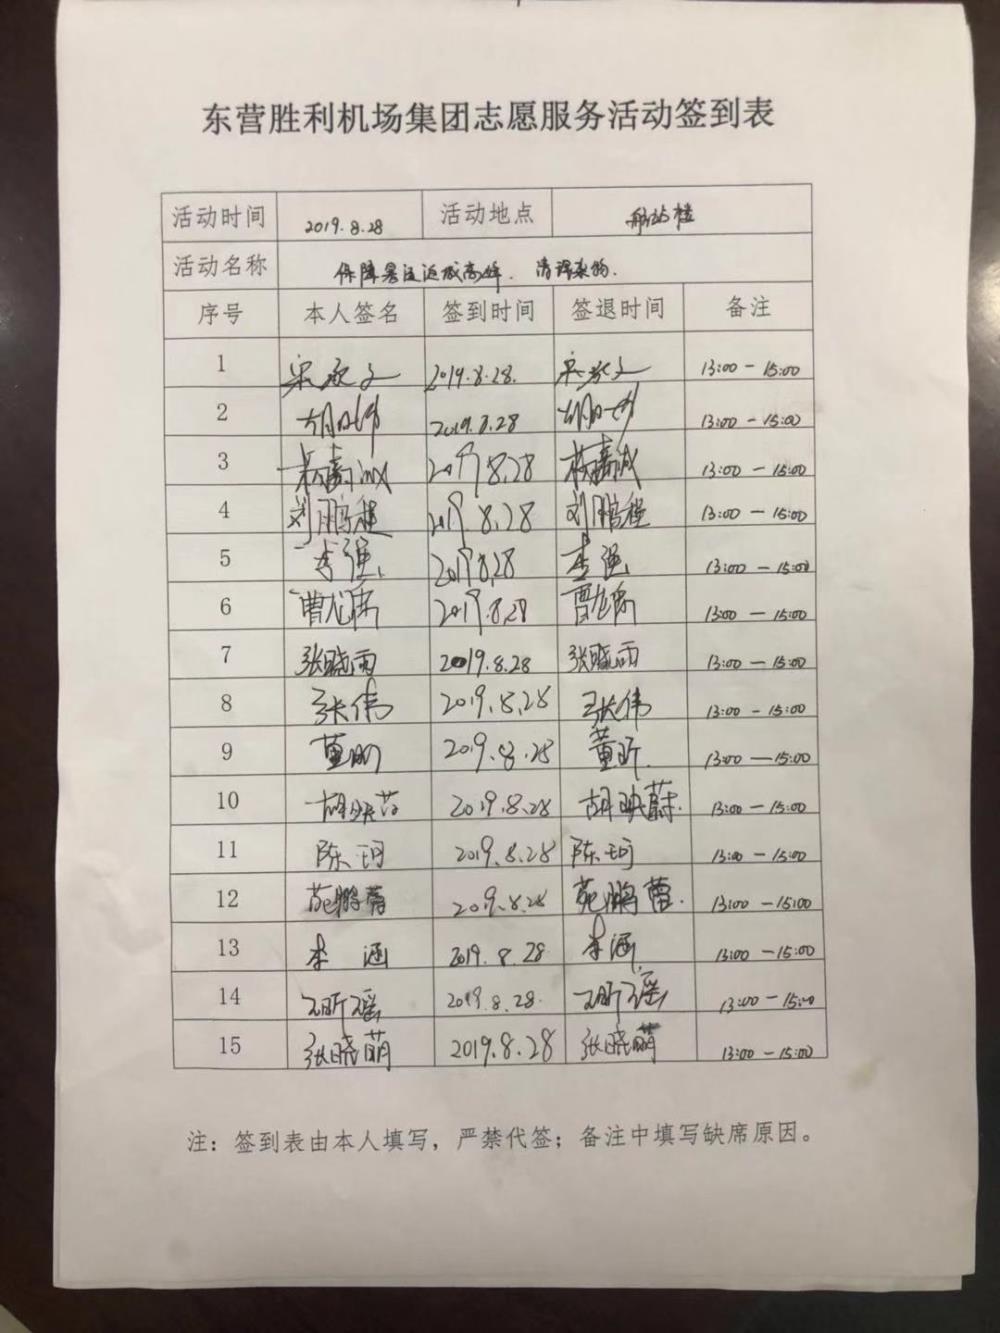 东营胜利机场集团志愿服务活动签到表
活动时间 2019.8.28 活动地点 航站楼
活动名称 保障暑运返城高峰. 清理杂物.
序号 本人签名 签到时间 签退时间 备注
1 2019.8.28. 13:00-15:00
2 2019.8.28 13:00-15:00
3 杨嘉诚 2019 8.28 杨嘉诚 13:00-15:00
4 刘鹏程 2019 8.28 刘鹏程 13:00-15:00
5 李强 2019 8.28 李强 13:00-15:00
6 2019.8.28 13:00-15:00
7 张晓雨 2019.8.28 张晓雨 13:00-15:00
8 张伟 2019.8.28 张伟 13:00-15:00
9 董昕 2019.8.28 董昕. 13:00-15:00
10 胡映蔚 2019.8.28 胡映蔚. 13:00-15:00
11 陈珂 2019.8.28 陈珂 13:00-15:00
12 苑鹏蕾 2019.8.28 苑鹏蕾. 13:00-15:00
13 李涵 2019.8.28 李涵 13:00-15:00
14 王昕瑶 2019.8.28. 王昕瑶 13:00-15:00
15 张晓萌 2019.8.28 张晓萌 13:00-15:00
注：签到表由本人填写，严禁代签；备注中填写缺席原因。